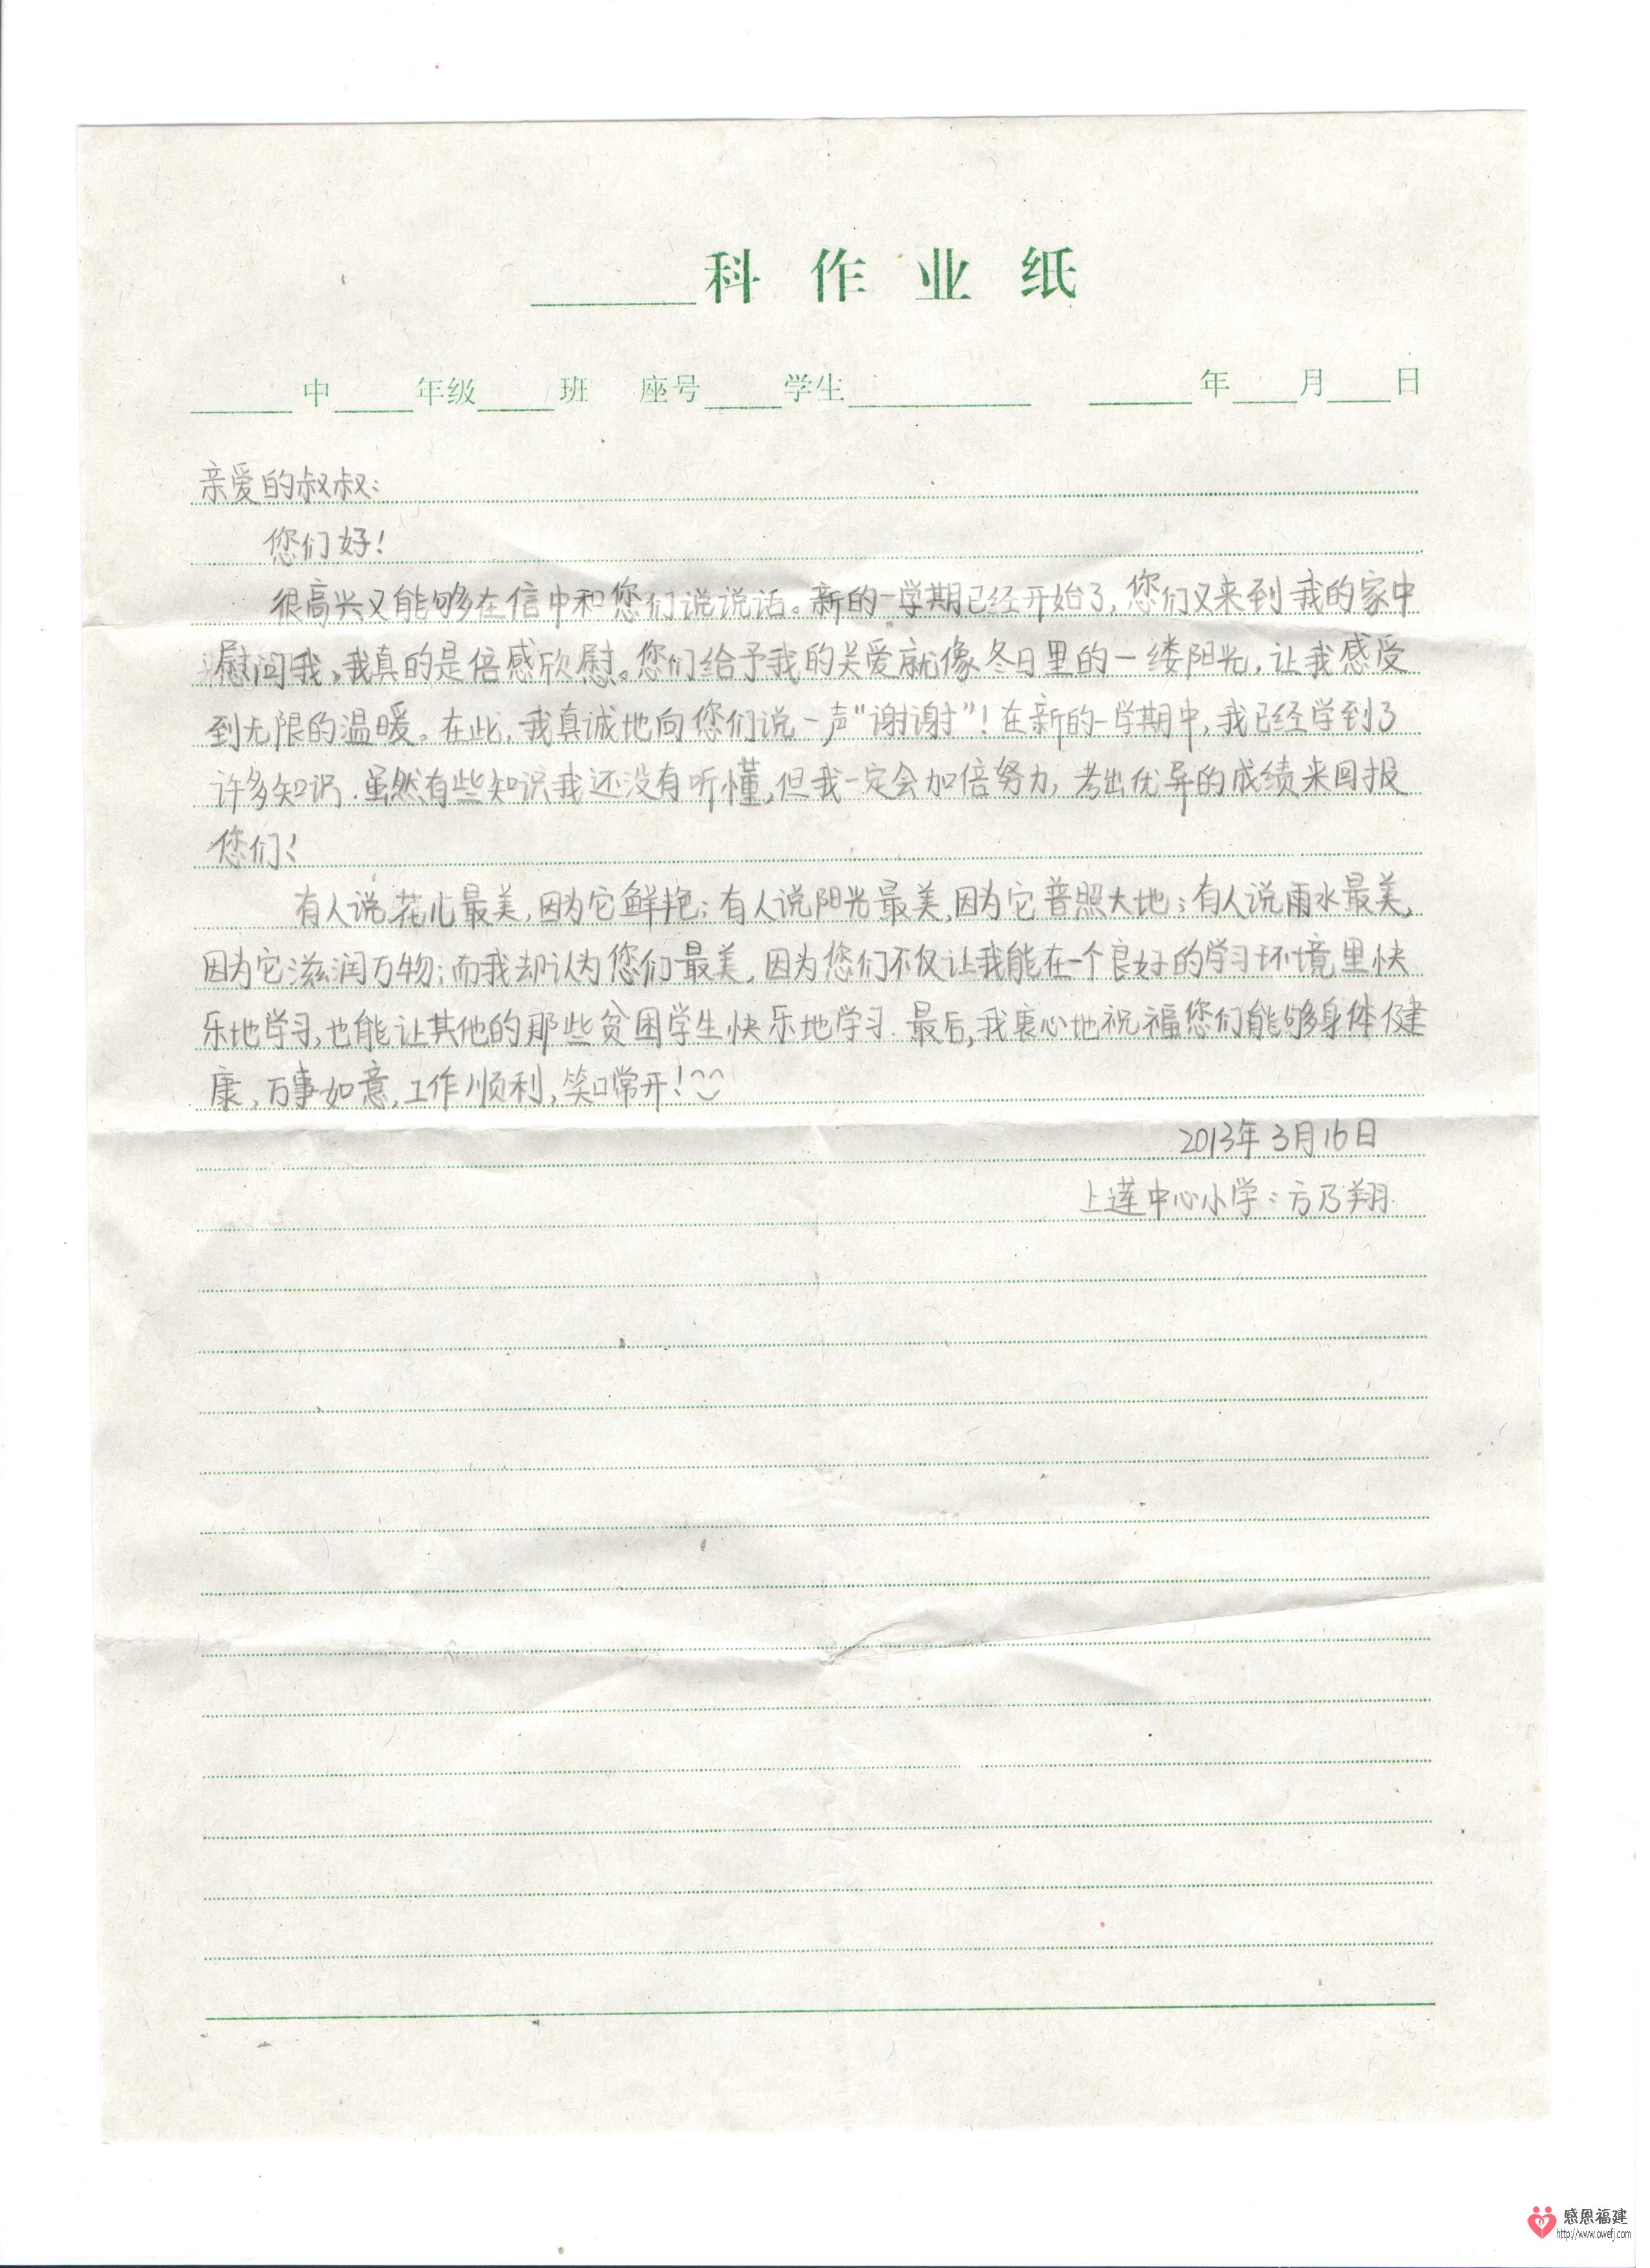 科作业纸
中 年级 班 座号 学生 年 月 日
亲爱的叔叔：
您们好！
很高兴又能够在信中和您们说说话。新的一学期已经开始了，您们又来到我的家中
慰问我，我真的是倍感欣慰。您们给予我的关爱就像冬日里的一缕阳光，让我感受
到无限的温暖。在此，我真诚地向您们说一声“谢谢”！在新的一学期中，我已经学到了
许多知识．虽然有些知识我还没有听懂，但我一定会加倍努力，考出优异的成绩来回报
您们！
有人说花儿最美，因为它鲜艳；有人说阳光最美，因为它普照大地；有人说雨水最美，
因为它滋润万物；而我却认为您们最美，因为您们不仅让我能在一个良好的学习环境里快
乐地学习，也能让其他的那些贫困学生快乐地学习．最后，我衷心地祝福您们能够身体健
康，万事如意，工作顺利，笑口常开！
2013年3月16日
上莲中心小学：方乃翔
感恩福建
http://www.owefj.com